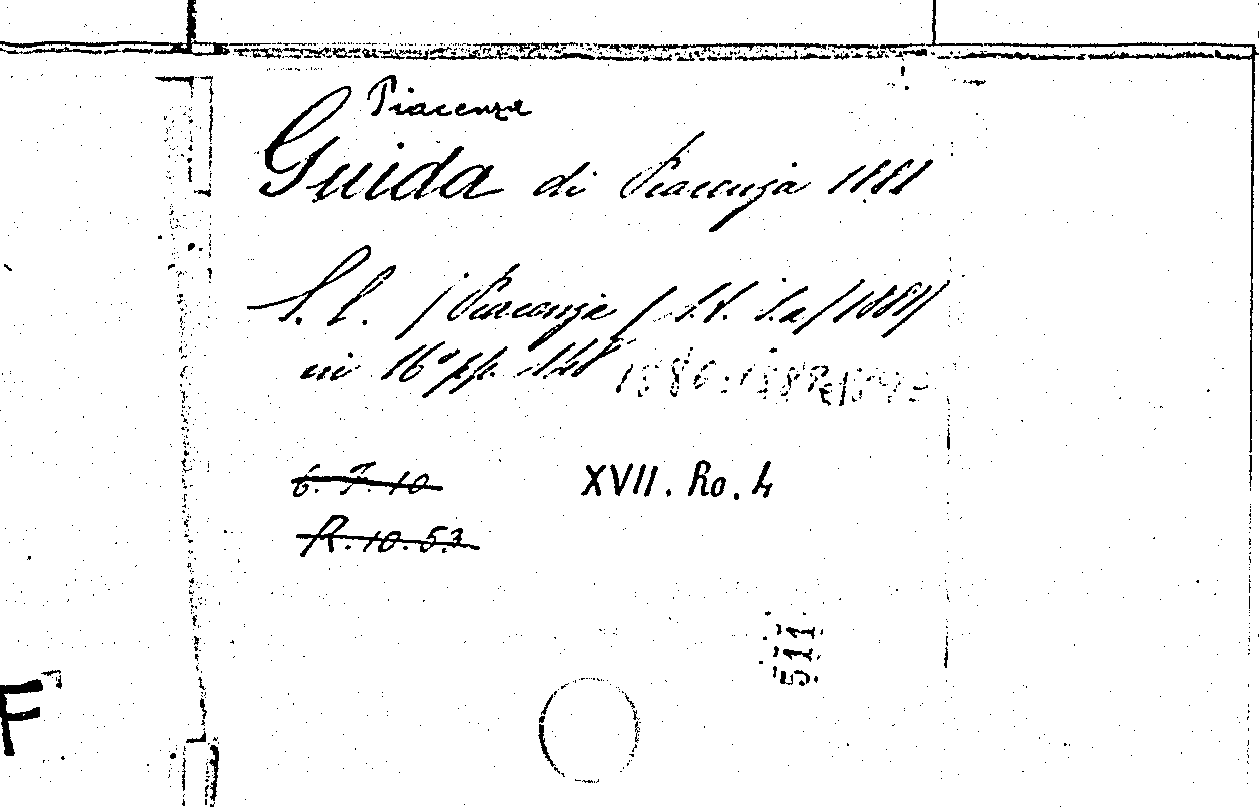 Piacenza
Guida di Piacenza 1881
S. l. (Piacenza) s.t. s.a. (1881)
in 16° pp. 148
6. F. 10
XVII. Ro. 4
R. 10. 53
511
F